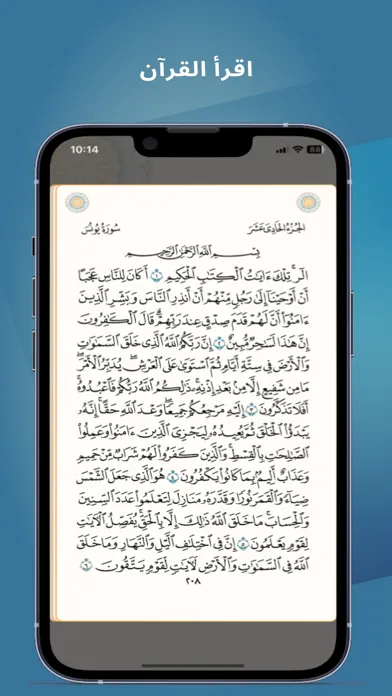 اقرأ القرآن
10:14
88
الجزء الحادي عشر
سورة يونس
بِسْمِ اللَّهِ الرَّحْمَٰنِ الرَّحِيمِ
الٓر تِلْكَ ءَايَٰتُ ٱلْكِتَٰبِ ٱلْحَكِيمِ ١ أَكَانَ لِلنَّاسِ عَجَبًا
أَنْ أَوْحَيْنَآ إِلَىٰ رَجُلٍ مِّنْهُمْ أَنْ أَنذِرِ ٱلنَّاسَ وَبَشِّرِ ٱلَّذِينَ
ءَامَنُوٓا۟ أَنَّ لَهُمْ قَدَمَ صِدْقٍ عِندَ رَبِّهِمْ ۗ قَالَ ٱلْكَٰفِرُونَ
إِنَّ هَٰذَا لَسَٰحِرٌ مُّبِينٌ ٢ إِنَّ رَبَّكُمُ ٱللَّهُ ٱلَّذِى خَلَقَ ٱلسَّمَٰوَٰتِ
وَٱلْأَرْضَ فِى سِتَّةِ أَيَّامٍ ثُمَّ ٱسْتَوَىٰ عَلَى ٱلْعَرْشِ ۖ يُدَبِّرُ ٱلْأَمْرَ ۖ
مَا مِن شَفِيعٍ إِلَّا مِنۢ بَعْدِ إِذْنِهِۦ ۚ ذَٰلِكُمُ ٱللَّهُ رَبُّكُمْ فَٱعْبُدُوهُ ۚ
أَفَلَا تَذَكَّرُونَ ٣ إِلَيْهِ مَرْجِعُكُمْ جَمِيعًا ۖ وَعْدَ ٱللَّهِ حَقًّا ۚ إِنَّهُۥ
يَبْدَؤُا۟ ٱلْخَلْقَ ثُمَّ يُعِيدُهُۥ لِيَجْزِىَ ٱلَّذِينَ ءَامَنُوا۟ وَعَمِلُوا۟
ٱلصَّٰلِحَٰتِ بِٱلْقِسْطِ ۚ وَٱلَّذِينَ كَفَرُوا۟ لَهُمْ شَرَابٌ مِّنْ حَمِيمٍ
وَعَذَابٌ أَلِيمٌۢ بِمَا كَانُوا۟ يَكْفُرُونَ ٤ هُوَ ٱلَّذِى جَعَلَ ٱلشَّمْسَ
ضِيَآءً وَٱلْقَمَرَ نُورًا وَقَدَّرَهُۥ مَنَازِلَ لِتَعْلَمُوا۟ عَدَدَ ٱلسِّنِينَ
وَٱلْحِسَابَ ۚ مَا خَلَقَ ٱللَّهُ ذَٰلِكَ إِلَّا بِٱلْحَقِّ ۚ يُفَصِّلُ ٱلْءَايَٰتِ
لِقَوْمٍ يَعْلَمُونَ ٥ إِنَّ فِى ٱخْتِلَٰفِ ٱلَّيْلِ وَٱلنَّهَارِ وَمَا خَلَقَ
ٱللَّهُ فِى ٱلسَّمَٰوَٰتِ وَٱلْأَرْضِ لَءَايَٰتٍ لِّقَوْمٍ يَتَّقُونَ ٦
٢٠٨